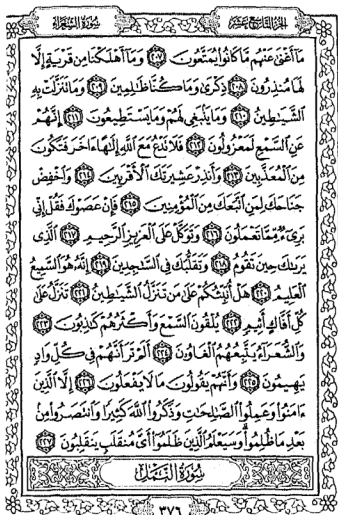 سُورَةُ الشُّعَرَاءِ
الجُزْءُ التَّاسِعَ عَشَرَ
مَآ أَغْنَىٰ عَنْهُم مَّا كَانُوا۟ يُمَتَّعُونَ ٢٠٧ وَمَآ أَهْلَكْنَا مِن قَرْيَةٍ إِلَّا
لَهَا مُنذِرُونَ ٢٠٨ ذِكْرَىٰ وَمَا كُنَّا ظَٰلِمِينَ ٢٠٩ وَمَا تَنَزَّلَتْ بِهِ
ٱلشَّيَٰطِينُ ٢١٠ وَمَا يَنۢبَغِى لَهُمْ وَمَا يَسْتَطِيعُونَ ٢١١ إِنَّهُمْ
عَنِ ٱلسَّمْعِ لَمَعْزُولُونَ ٢١٢ فَلَا تَدْعُ مَعَ ٱللَّهِ إِلَٰهًا ءَاخَرَ فَتَكُونَ
مِنَ ٱلْمُعَذَّبِينَ ٢١٣ وَأَنذِرْ عَشِيرَتَكَ ٱلْأَقْرَبِينَ ٢١٤ وَٱخْفِضْ
جَنَاحَكَ لِمَنِ ٱتَّبَعَكَ مِنَ ٱلْمُؤْمِنِينَ ٢١٥ فَإِنْ عَصَوْكَ فَقُلْ إِنِّى
بَرِىٓءٌ مِّمَّا تَعْمَلُونَ ٢١٦ وَتَوَكَّلْ عَلَى ٱلْعَزِيزِ ٱلرَّحِيمِ ٢١٧ ٱلَّذِى
يَرَىٰكَ حِينَ تَقُومُ ٢١٨ وَتَقَلُّبَكَ فِى ٱلسَّٰجِدِينَ ٢١٩ إِنَّهُۥ هُوَ ٱلسَّمِيعُ
ٱلْعَلِيمُ ٢٢٠ هَلْ أُنَبِّئُكُمْ عَلَىٰ مَن تَنَزَّلُ ٱلشَّيَٰطِينُ ٢٢١ تَنَزَّلُ عَلَىٰ
كُلِّ أَفَّاكٍ أَثِيمٍ ٢٢٢ يُلْقُونَ ٱلسَّمْعَ وَأَكْثَرُهُمْ كَٰذِبُونَ ٢٢٣
وَٱلشُّعَرَآءُ يَتَّبِعُهُمُ ٱلْغَاوُۥنَ ٢٢٤ أَلَمْ تَرَ أَنَّهُمْ فِى كُلِّ وَادٍ
يَهِيمُونَ ٢٢٥ وَأَنَّهُمْ يَقُولُونَ مَا لَا يَفْعَلُونَ ٢٢٦ إِلَّا ٱلَّذِينَ
ءَامَنُوا۟ وَعَمِلُوا۟ ٱلصَّٰلِحَٰتِ وَذَكَرُوا۟ ٱللَّهَ كَثِيرًا وَٱنتَصَرُوا۟ مِنۢ
بَعْدِ مَا ظُلِمُوا۟ وَسَيَعْلَمُ ٱلَّذِينَ ظَلَمُوٓا۟ أَىَّ مُنقَلَبٍ يَنقَلِبُونَ ٢٢٧
سُورَةُ النَّمْلِ
٣٧٦